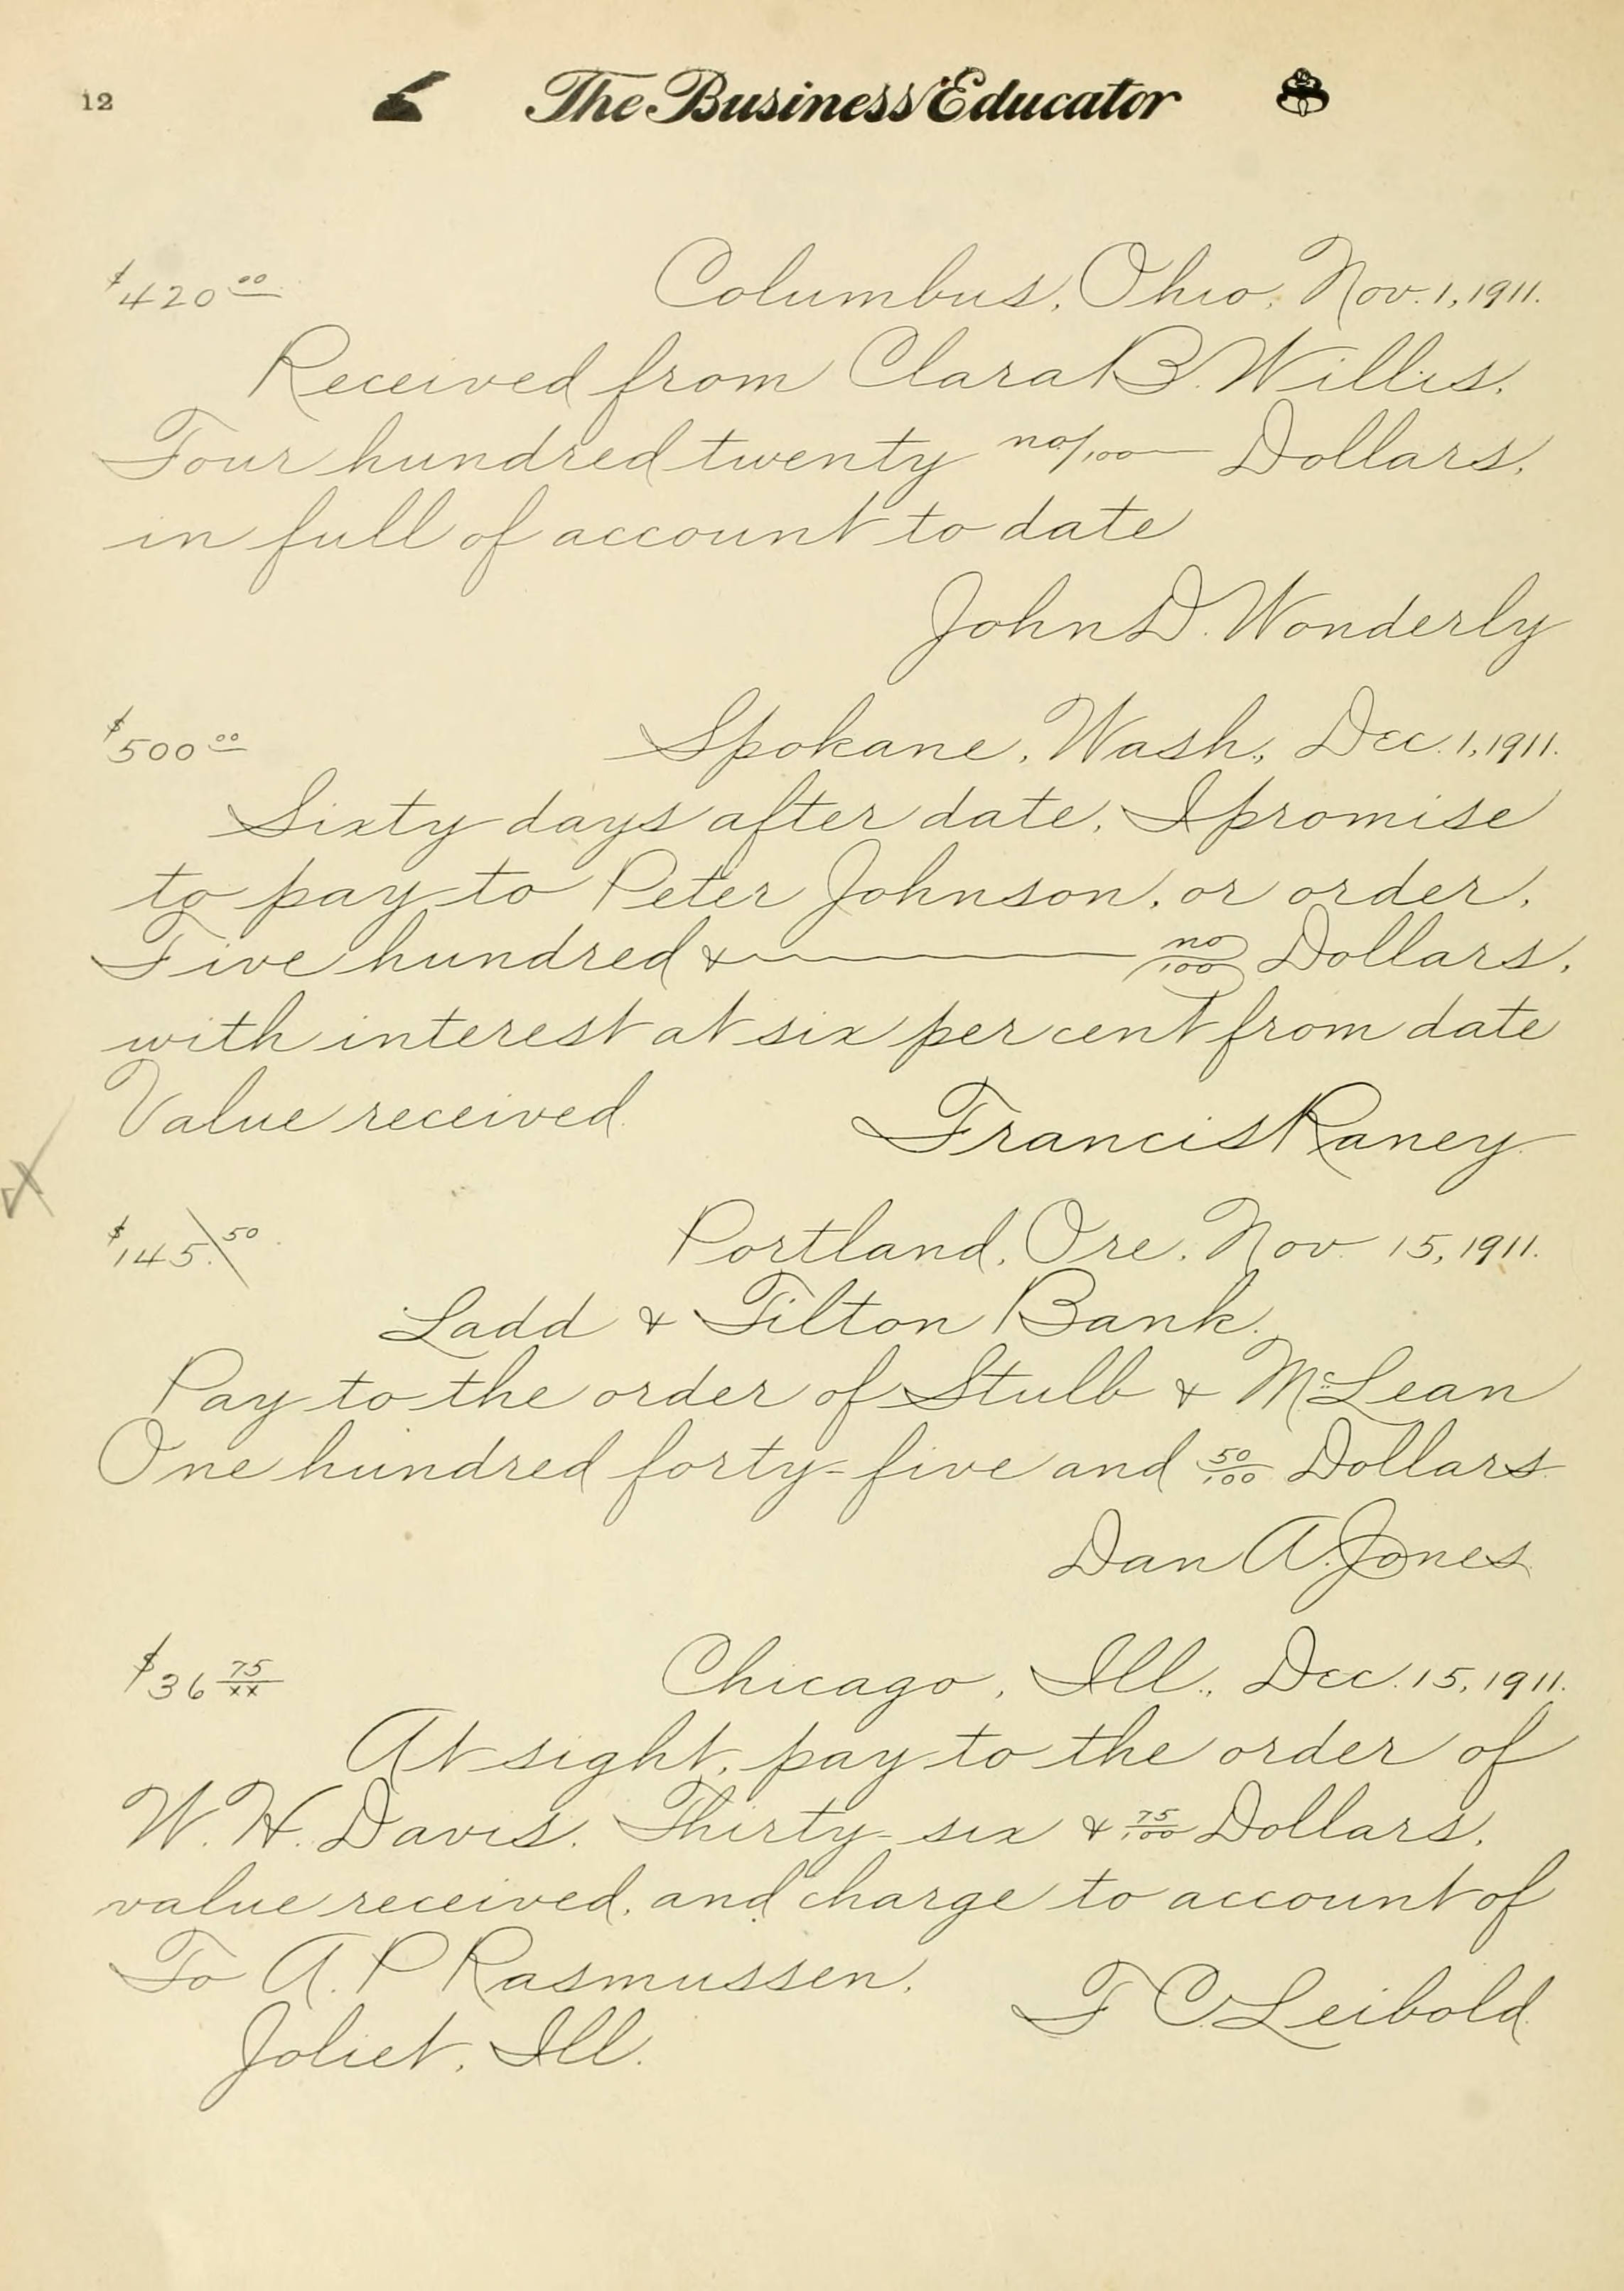 12
The Business Educator
$420 00 Columbus, Ohio, Nov. 1, 1911.
Received from Clara B. Willis,
Four hundred twenty no/100 Dollars,
in full of account to date
John D. Wonderly
$500 00 Spokane, Wash., Dec. 1, 1911.
Sixty days after date, I promise
to pay to Peter Johnson, or order,
Five hundred & no/100 Dollars,
with interest at six per cent from date
Value received. Francis Raney
$145.50 Portland, Ore. Nov. 15, 1911.
Ladd & Tilton Bank.
Pay to the order of Stulb & McLean
One hundred forty-five and 50/100 Dollars
Dan A. Jones
$36 75/xx Chicago, Ill., Dec. 15, 1911.
At sight, pay to the order of
W. H. Davis. Thirty-six & 75/100 Dollars,
value received, and charge to account of
To A. P Rasmussen, F C. Leibold
Joliet, Ill.